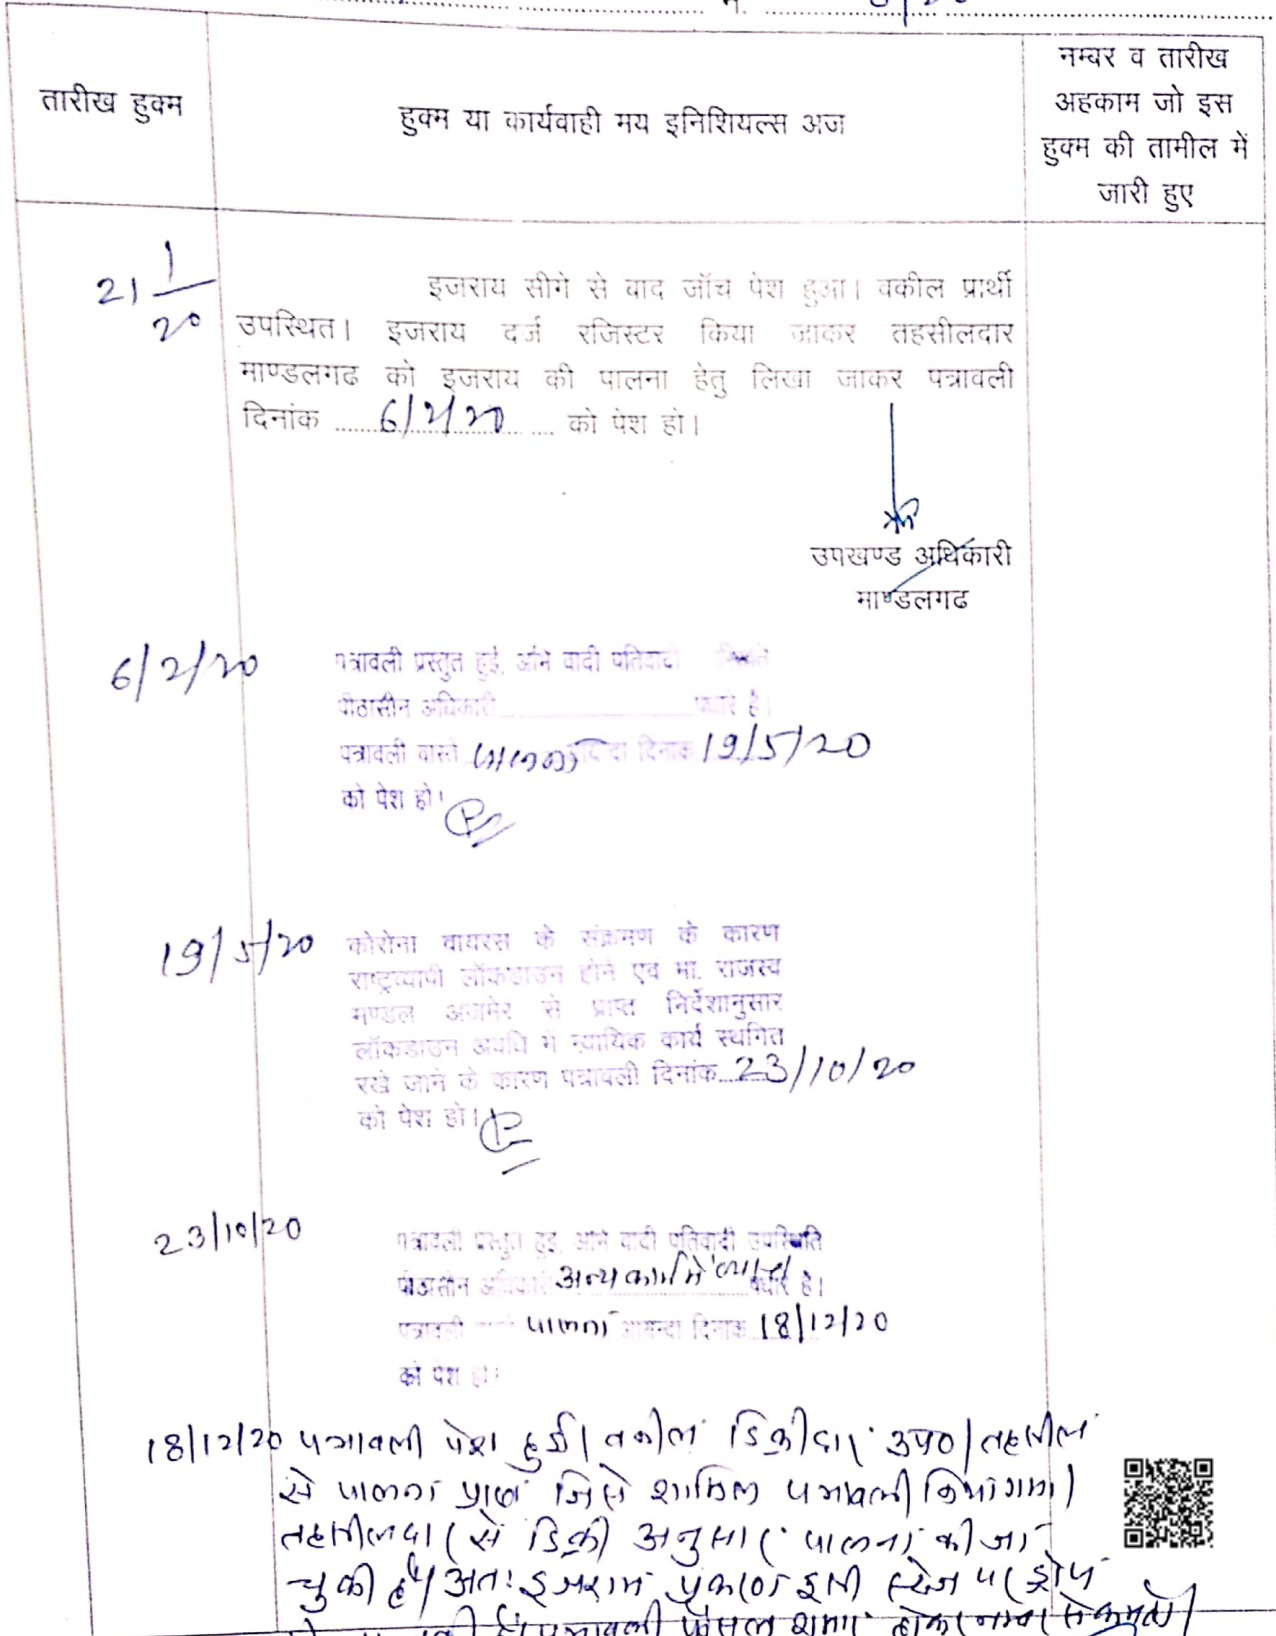 तारीख हुक्म
हुक्म या कार्यवाही मय इनिशियल्स अज
नम्बर व तारीख
अहकाम जो इस
हुक्म की तामील में
जारी हुए
21/1/20
इजराय सीगे से बाद जॉच पेश हुआ। वकील प्रार्थी
उपस्थित। इजराय दर्ज रजिस्टर किया जाकर तहसीलदार
माण्डलगढ को इजराय की पालना हेतु लिखा जाकर पत्रावली
दिनांक 6/2/20 को पेश हो।
उपखण्ड अधिकारी
माण्डलगढ
6/2/20
पत्रावली प्रस्तुत हुई, वादी
पीठासीन अधिकारी है।
पत्रावली वास्ते पालना दिनांक 19/5/20
को पेश हो।
19/5/20
कोरोना वायरस के संक्रमण के कारण
राष्ट्रव्यापी लॉकडाउन होने एवं मा. राजस्व
मण्डल अजमेर से प्राप्त निर्देशानुसार
लॉकडाउन अवधि में न्यायिक कार्य स्थगित
रखे जाने के कारण पत्रावली दिनांक 23/10/20
को पेश हो।
23/10/20
पत्रावली प्रस्तुत हुई, वादी
पीठासीन अधिकारी अन्य कार्य में है।
पत्रावली पालना आयन्दा दिनांक 18/12/20
को पेश हो।
18/12/20 पत्रावली पेश हुई। वकील डिक्रीदार उप०। तहसील
से पालना प्राप्त जिसे शामिल पत्रावली किया गया।
तहसीलदार से डिक्री अनुसार पालना की जा
चुकी है। अतः इजराय प्रकरण इसी स्टेज पर ड्रोप
पत्रावली फैसल शुमार होकर नम्बर से कम हो।